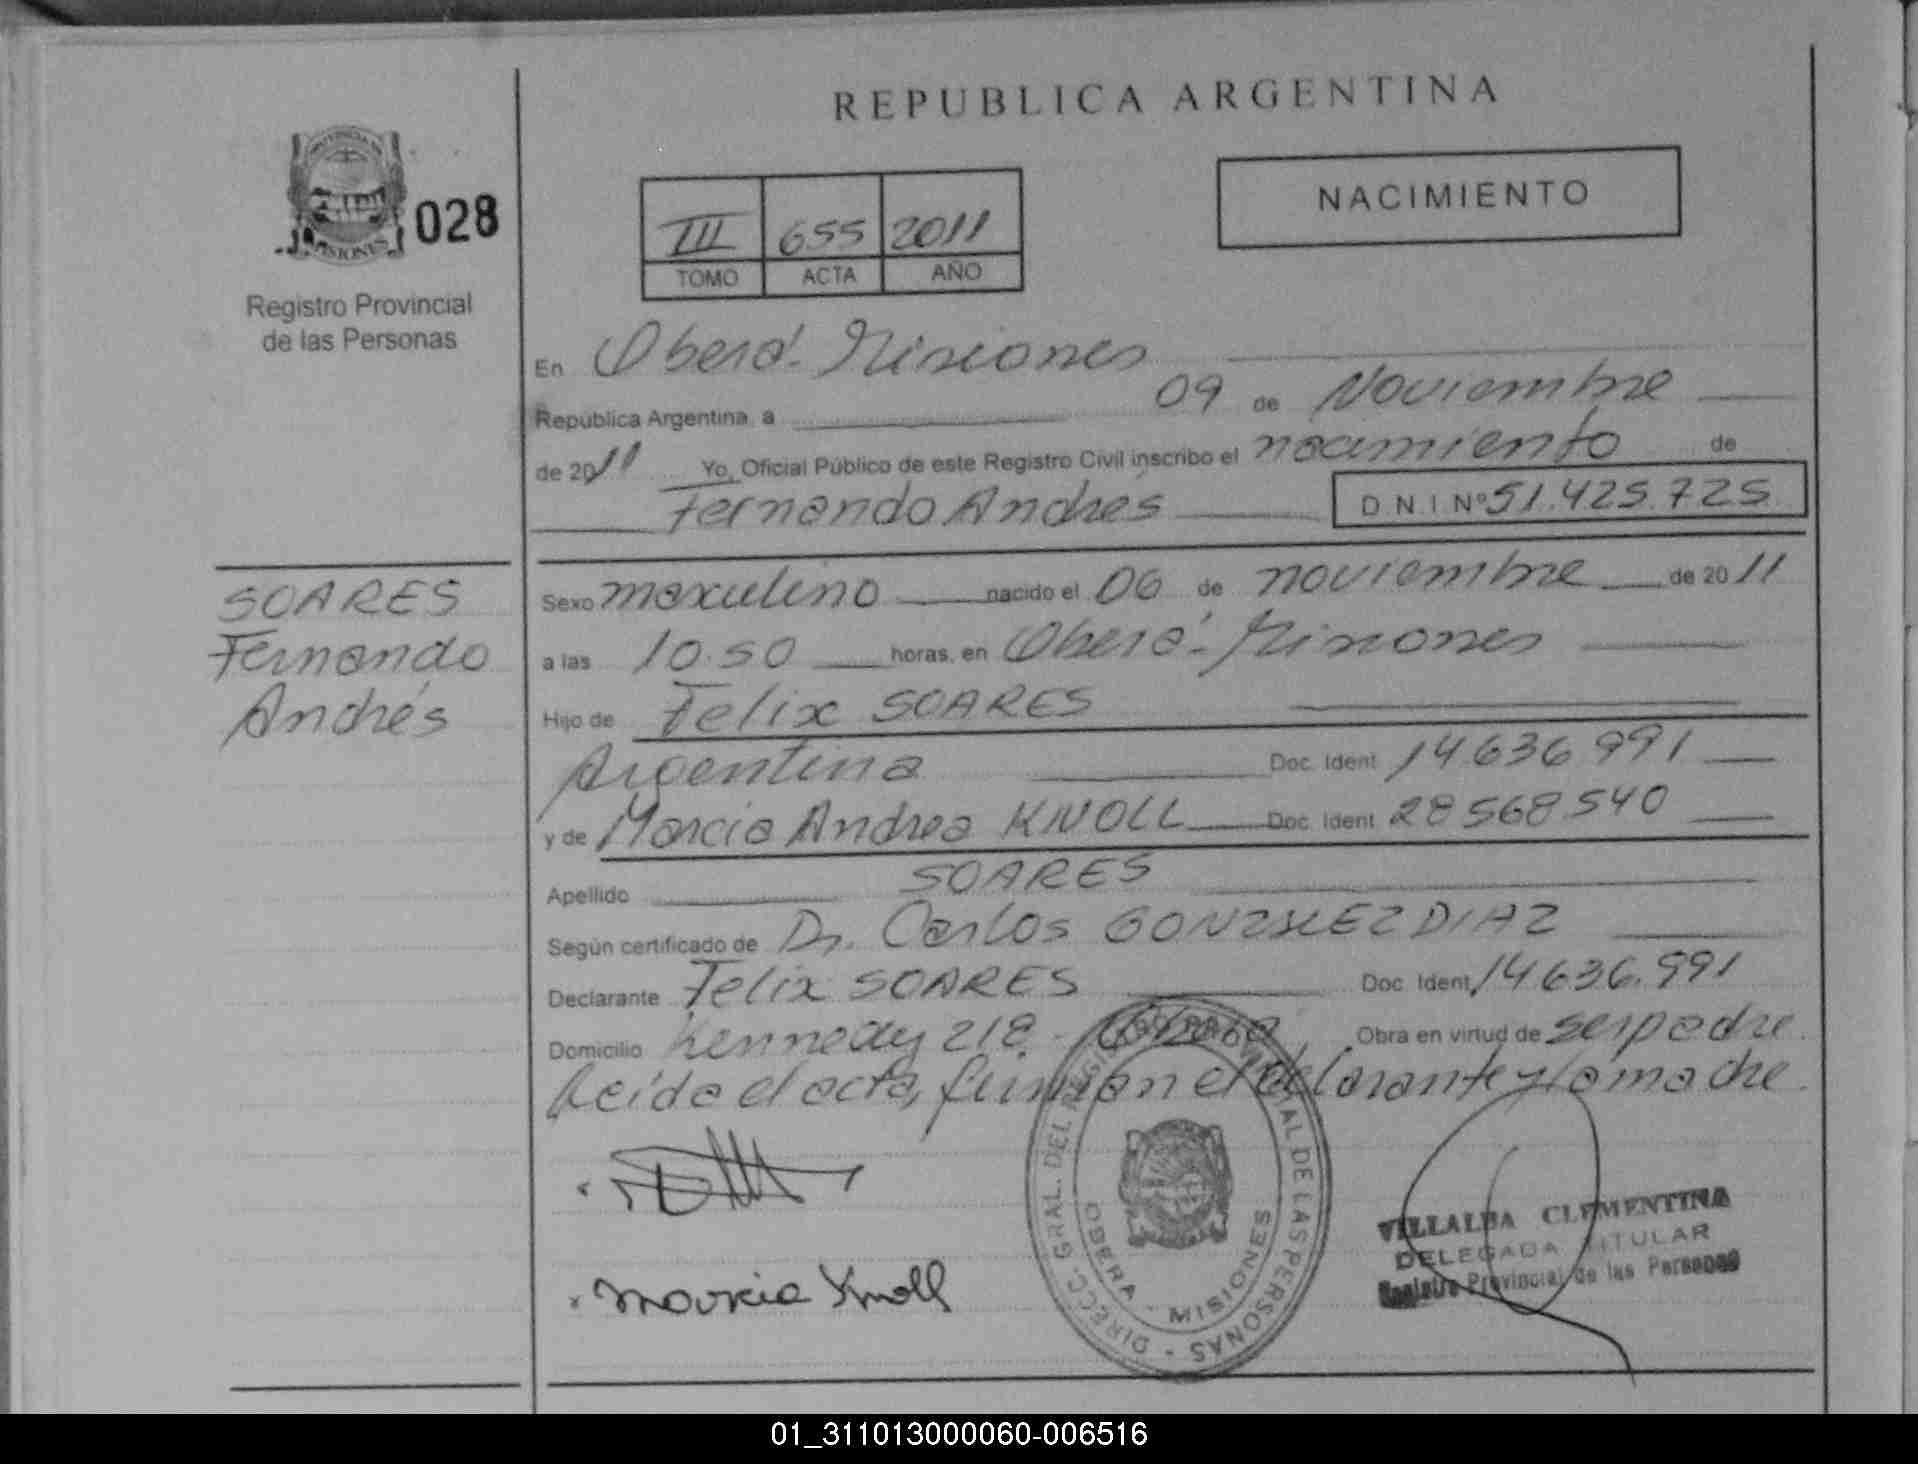 REPUBLICA ARGENTINA
028
Registro Provincial
de las Personas
III 655 2011
TOMO ACTA AÑO
NACIMIENTO
En Oberá - Misiones
República Argentina, a 09 de Noviembre
de 2011 Yo, Oficial Público de este Registro Civil inscribo el nacimiento de
Fernando Andrés D.N.I Nº 51.425.725
SOARES
Fernando
Andrés
Sexo masculino nacido el 06 de noviembre de 2011
a las 10.50 horas, en Oberá - Misiones
Hijo de Felix SOARES
Argentina Doc. Ident 14636991
y de Marcia Andrea KNOLL Doc. Ident 28568540
Apellido SOARES
Según certificado de Dr. Carlos GONZALEZ DIAZ
Declarante Felix SOARES Doc. Ident 14636.991
Domicilio Kennedy 218 - Oberá Obra en virtud de ser padre
Leída el acta, firman el declarante y la madre
Marcia Knoll
DIRECC. GRAL. DEL REGISTRO PROVINCIAL DE LAS PERSONAS
OBERA - MISIONES
VILLALBA CLEMENTINA
DELEGADA TITULAR
Registro Provincial de las Personas
01_311013000060-006516